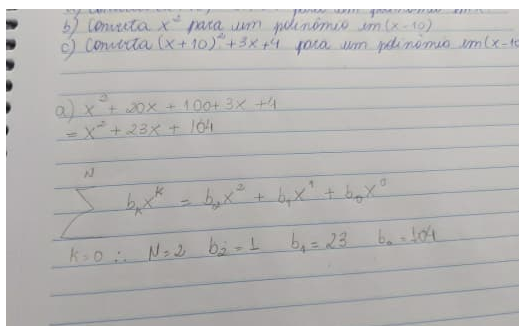 b) Converta x² para um polinômio em (x-10)
c) Converta (x+10)² + 3x + 4 para um polinômio em (x-10
a) x² + 20x + 100 + 3x + 4
= x² + 23x + 104
N
∑ bₖxᵏ = b₂x² + b₁x¹ + b₀x⁰
K=0 ∴ N=2 b₂=1 b₁=23 b₀=104